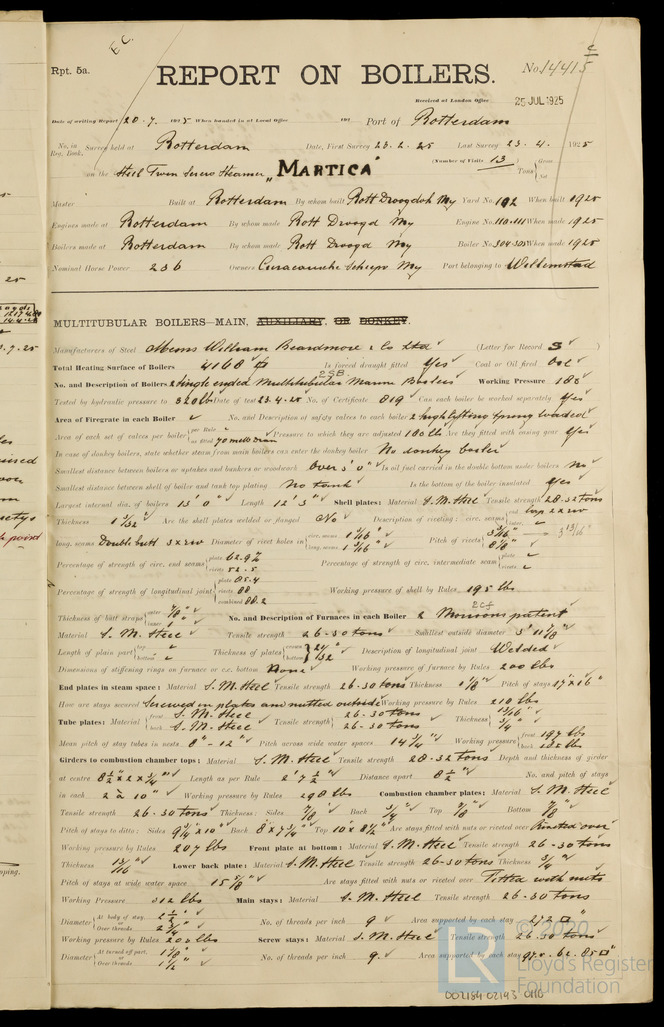 E.C.
Rpt. 5a.
REPORT ON BOILERS.
No. 14415
Received at London Office 25 JUL 1925
Date of writing Report 20.7. 1925 When handed in at Local Office 192 Port of Rotterdam
No. in Reg. Book. Survey held at Rotterdam Date, First Survey 23.2.25 Last Survey 23.4. 1925
on the Steel Twin Screw Steamer "MARTICA" (Number of Visits 13) Tons Gross Net
Master Built at Rotterdam By whom built Rott Droogdok My Yard No. 102 When built 1925
Engines made at Rotterdam By whom made Rott Droogd My Engine No. 110-111 When made 1925
Boilers made at Rotterdam By whom made Rott Droogd My Boiler No. 304-305 When made 1925
Nominal Horse Power 236 Owners Curacaosche Scheepv My Port belonging to Willemstad
MULTITUBULAR BOILERS—MAIN, AUXILIARY, OR DONKEY.
Manufacturers of Steel Messrs William Beardmore & Co Ltd (Letter for Record S)
Total Heating Surface of Boilers 4168 Is forced draught fitted Yes Coal or Oil fired Oil
2SB
No. and Description of Boilers 2 Single ended Multitubular Marine Boilers Working Pressure 180
Tested by hydraulic pressure to 320 lb Date of test 23.4.25 No. of Certificate 819 Can each boiler be worked separately Yes
Area of Firegrate in each Boiler No. and Description of safety valves to each boiler 2 high lifting spring loaded
Area of each set of valves per boiler per Rule as fitted 70 m/m diam Pressure to which they are adjusted 180 lbs Are they fitted with easing gear Yes
In case of donkey boilers, state whether steam from main boilers can enter the donkey boiler No donkey boiler
Smallest distance between boilers or uptakes and bunkers or woodwork Over 3' 0" Is oil fuel carried in the double bottom under boilers No
Smallest distance between shell of boiler and tank top plating No tank Is the bottom of the boiler insulated Yes
Largest internal dia. of boilers 13' 0" Length 12' 3" Shell plates: Material S.M. Steel Tensile strength 28-32 tons
Thickness 1 1/32 Are the shell plates welded or flanged No Description of riveting: circ. seams end lap 2 x riv inter.
long. seams Double butt 3 x riv Diameter of rivet holes in circ. seams 1 1/16" long. seams 1 1/16" Pitch of rivets 3 3/16" 8 1/8" 3 13/16"
Percentage of strength of circ. end seams plate 62.9% rivets 52.5 Percentage of strength of circ. intermediate seam plate rivets
Percentage of strength of longitudinal joint plate 85.4 rivets 88 combined 88.2 Working pressure of shell by Rules 195 lbs
Thickness of butt straps outer 7/8" inner 1" No. and Description of Furnaces in each Boiler 2 Morisons patent
2cf
Material S.M. Steel Tensile strength 26-30 tons Smallest outside diameter 3' 11 7/8"
Length of plain part top bottom Thickness of plates crown bottom 21/32 Description of longitudinal joint Welded
Dimensions of stiffening rings on furnace or c.c. bottom None Working pressure of furnace by Rules 200 lbs
End plates in steam space: Material S.M. Steel Tensile strength 26-30 tons Thickness 1 1/8" Pitch of stays 17" x 16"
How are stays secured Screwed in plates and nutted outside Working pressure by Rules 210 lbs
Tube plates: Material front S.M. Steel back S.M. Steel Tensile strength 26-30 tons 26-30 tons Thickness 13/16" 3/4"
Mean pitch of stay tubes in nests 8"-12" Pitch across wide water spaces 14 3/4" Working pressure front 197 lbs back
Girders to combustion chamber tops: Material S.M. Steel Tensile strength 28-32 tons Depth and thickness of girder
at centre 8 1/2" x 2 x 3/4" Length as per Rule 2' 7 1/2" Distance apart 8 1/2" No. and pitch of stays
in each 2 à 10" Working pressure by Rules 290 lbs Combustion chamber plates: Material S.M. Steel
Tensile strength 26-30 tons Thickness: Sides 7/8" Back 3/4" Top 7/8" Bottom 7/8"
Pitch of stays to ditto: Sides 9 3/4 x 10" Back 8" x 7 3/4" Top 10 x 8 1/2" Are stays fitted with nuts or riveted over Riveted over
Working pressure by Rules 207 lbs Front plate at bottom: Material S.M. Steel Tensile strength 26-30 tons
Thickness 13/16" Lower back plate: Material S.M. Steel Tensile strength 26-30 tons Thickness 3/4"
Pitch of stays at wide water space 15 5/8" Are stays fitted with nuts or riveted over Fitted with nuts
Working Pressure 212 lbs Main stays: Material S.M. Steel Tensile strength 26-30 tons
Diameter At body of stay, or Over threads 2 3/4" No. of threads per inch 9. Area supported by each stay 272 □"
Working pressure by Rules 200 lbs Screw stays: Material S.M. Steel Tensile strength 26-30 tons
Diameter At turned off part, or Over threads 1 1/2" No. of threads per inch 9. Area supported by each stay 97.5. 62. 85 □"
© 2020
LR
Lloyd's Register
Foundation
002184-02193-0110